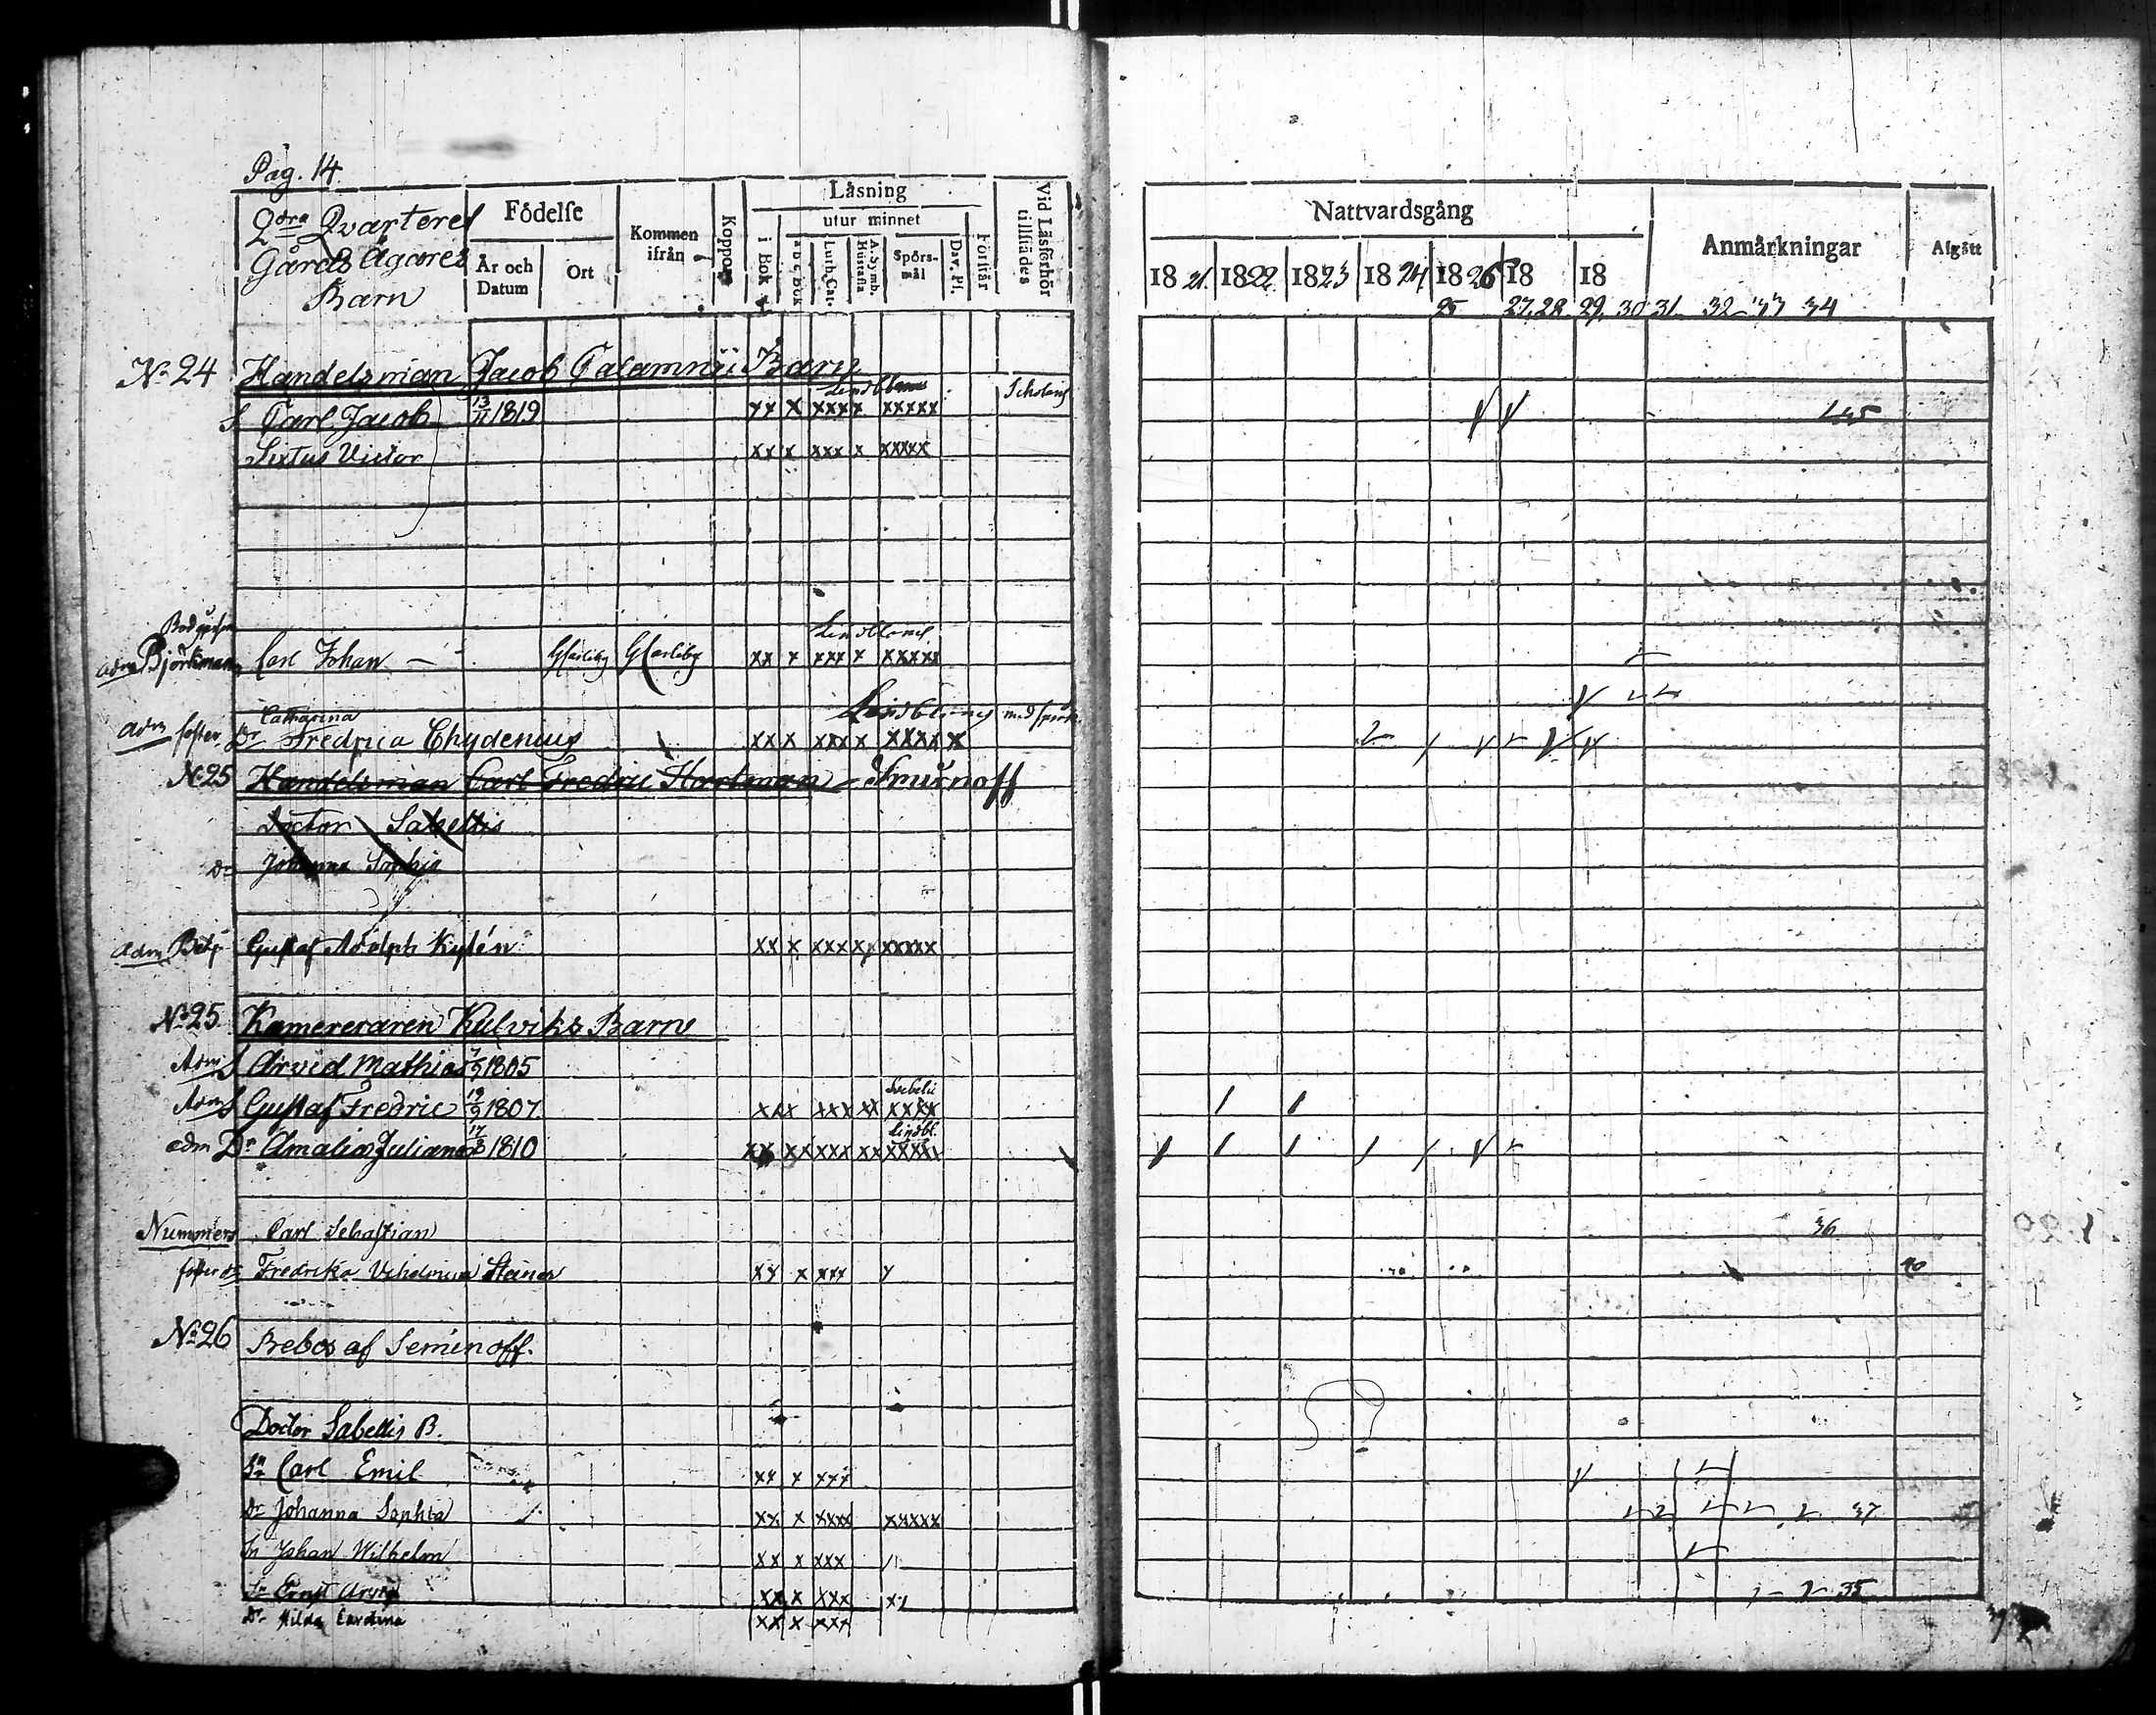 Pag. 14
2dra Qvarteret
Gårds Ägares
Barn
Födelse
År och Datum
Ort
Kommen ifrån
Koppor
Läsning
i Bok
utur minnet
a b c Bok
Luth. Cat.
A. Symb. Hustafla
Spörs-mål
Dav. Ps.
Förstår
Vid Läsförhör tillstädes
Nattvardsgång
1821 1822 1823 1824 1826 18 18
25 27.28 29. 30 31 32 33 34
Anmärkningar
Afgått
No 24 Handelsman Jacob Calamnii Barn
Lindbloms
S Carl Jacob 13/11 1819 xx x xxx x xxxxx
Sixtus Victor xx x xxx x xxxxx
adm Björkman Carl Johan GCarleby GCarleby xx x xxx x xxxxx
Lindbloms
Catharina
adm foster Dr Fredrica Chydenius xx x xxx x xxxx x
No 25 Handelsman Carl Fredric Hartman Smurnoff
Doctor Sabellis
Dr Johanna Sophia
adm Betj Gustaf Adolph xx x xxx x xxxxx
No 25. Kamereraren Kulviks Barn
Adm S Arvid Mathias 1805
Svebelii
Adm S Gustaf Fredric 19/9 1807 xxx xxx xx xxxx
Lindbl.
adm Dr Amalia Juliana 17/8 1810 xx xx xxx xx xxxxx
Nummers Carl Sebastian 36
foster dr Fredrika Steiner xx x xxx x 40
No 26 Rebos af Seminoff.
Doctor Sabellis B.
Sn Carl Emil xx x xxx
Dr Johanna Sophia xx x xxxx xxxxx 37
Sn Johan Wilhelm xx x xxx
Sn Ernst Arvid xx x xxx xx 35
Dr Hilda Carolina xx x xxx